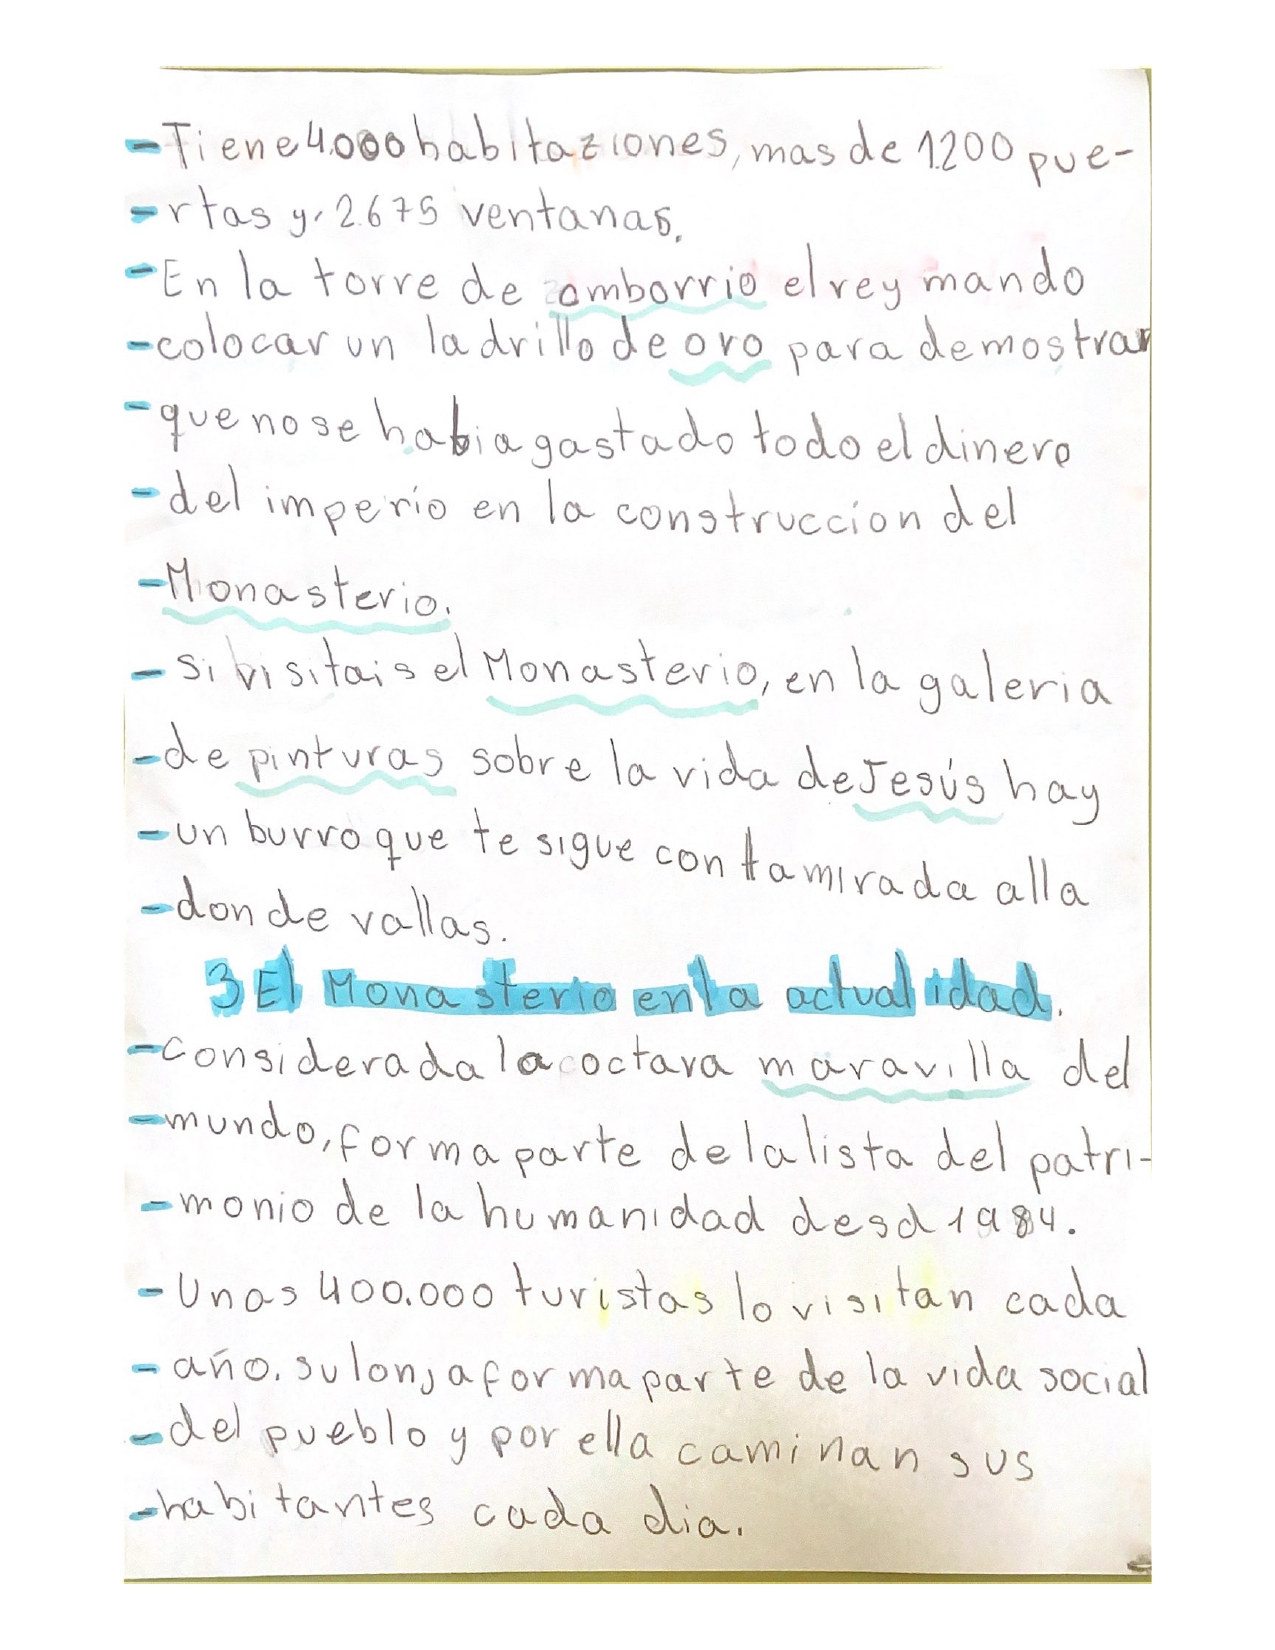 -Tiene 4.000 habitaziones, mas de 1.200 pue-
-rtas y 2.675 ventanas.
-En la torre de omborrio el rey mando
-colocar un ladrillo de oro para demostrar
-que no se habia gastado todo el dinero
-del imperío en la construccion del
-Monasterio.
- si bisitais el Monasterio, en la galeria
-de pinturas sobre la vida de Jesús hay
-un burro que te sigue con la mirada alla
-donde vallas.
3 El Monasterio en la actualidad.
-Considerada la octava maravilla del
-mundo, forma parte de la lista del patri-
-monio de la humanidad desd 1984.
- Unas 400.000 turistas lo visitan cada
- año. su lonja forma parte de la vida social
-del pueblo y por ella caminan sus
-habitantes cada dia.